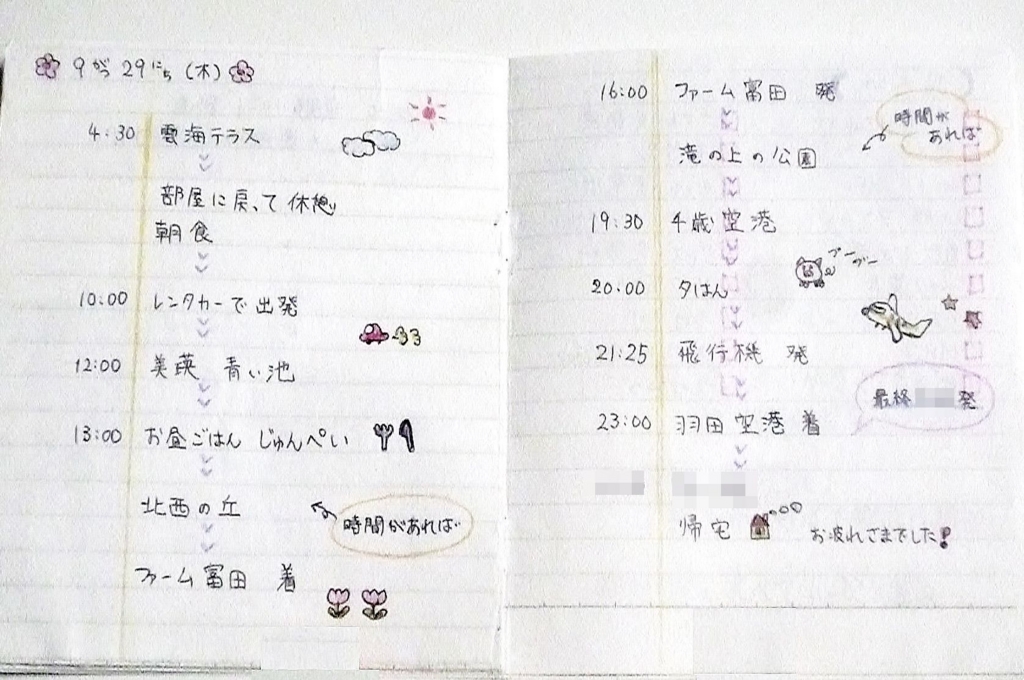 9がつ 29にち (木)
4:30 雲海テラス
部屋に戻って休憩
朝食
10:00 レンタカーで出発
12:00 美瑛 青い池
13:00 お昼ごはん じゅんぺい
北西の丘
時間があれば
ファーム富田 着
16:00 ファーム富田 発
時間が
あれば
滝の上の公園
19:30 千歳空港
ブーブー
20:00 夕はん
21:25 飛行機 発
最終 発
23:00 羽田空港 着
帰宅 お疲れさまでした!